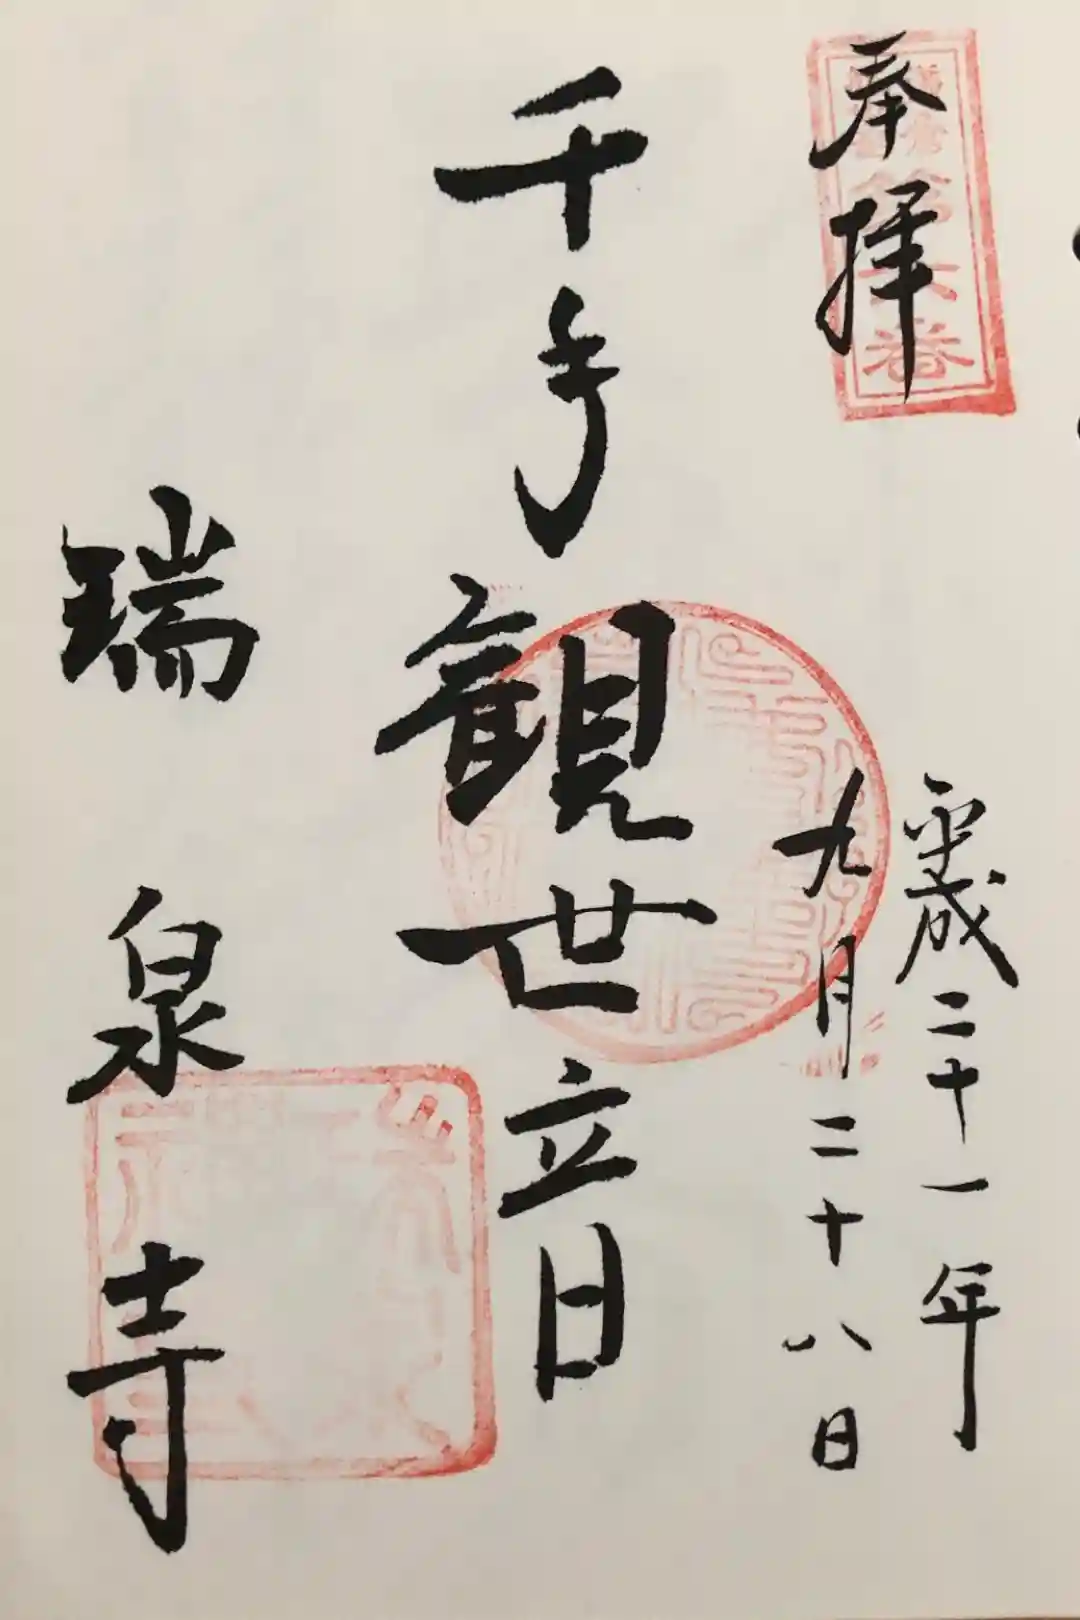 奉拝
平成二十一年
九月二十八日
千手観世音
瑞泉寺
第六番